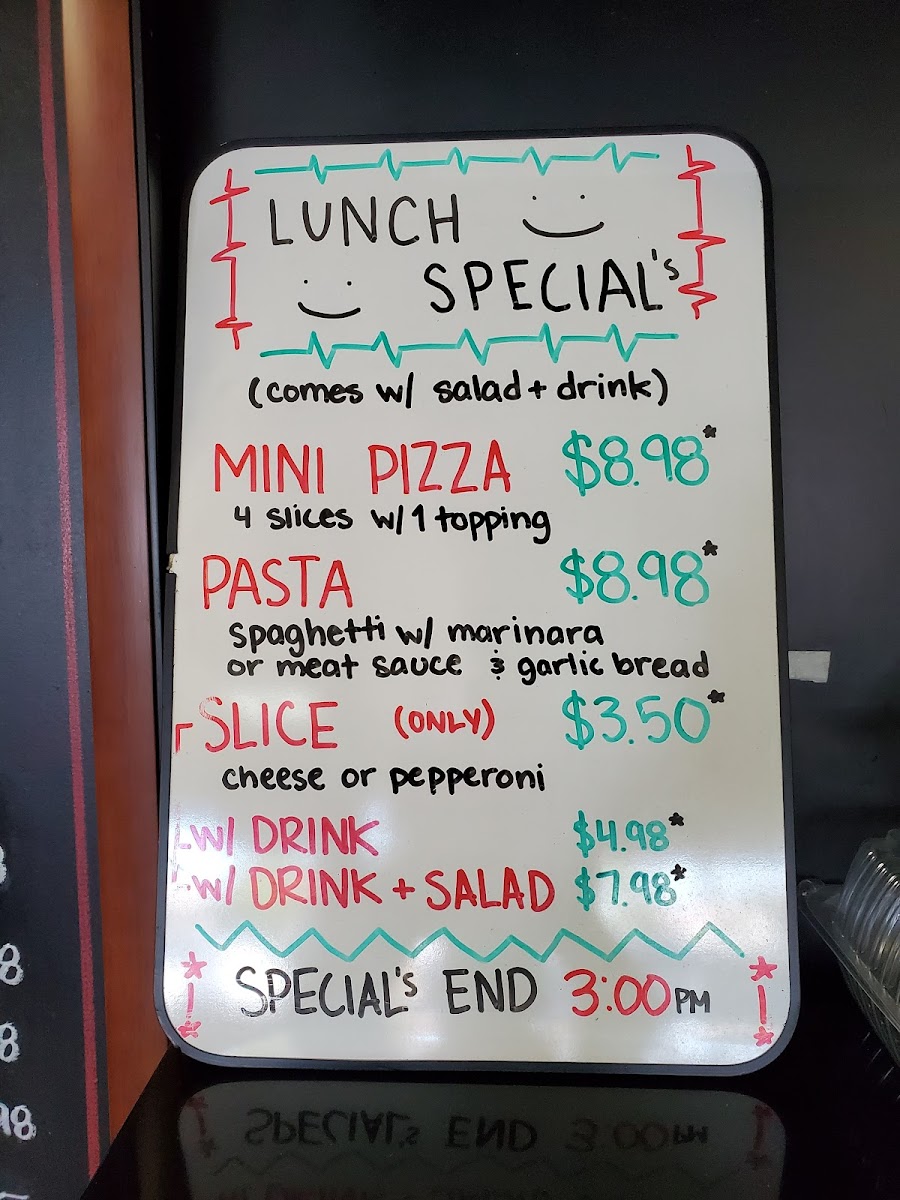 LUNCH
SPECIAL's
(comes w/ salad + drink)
MINI PIZZA $8.98*
4 slices w/ 1 topping
PASTA $8.98*
spaghetti w/ marinara
or meat sauce & garlic bread
SLICE (ONLY) $3.50*
cheese or pepperoni
w/ DRINK $4.98*
w/ DRINK + SALAD $7.98*
SPECIAL's END 3:00 PM
8
8
98